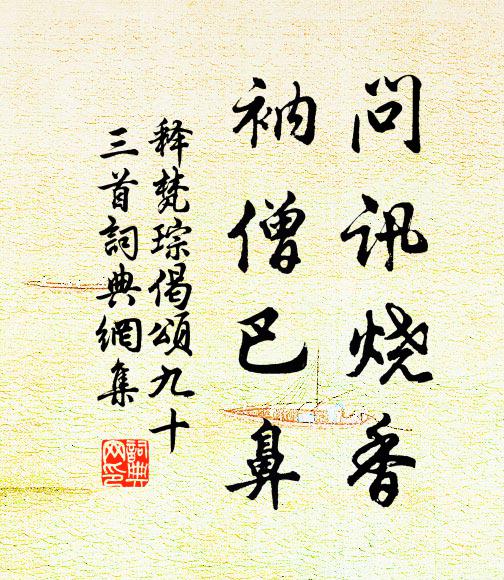 问讯烧香
衲僧巴鼻
释梵琮偈颂九十
三首詞典網集
詞典
网印